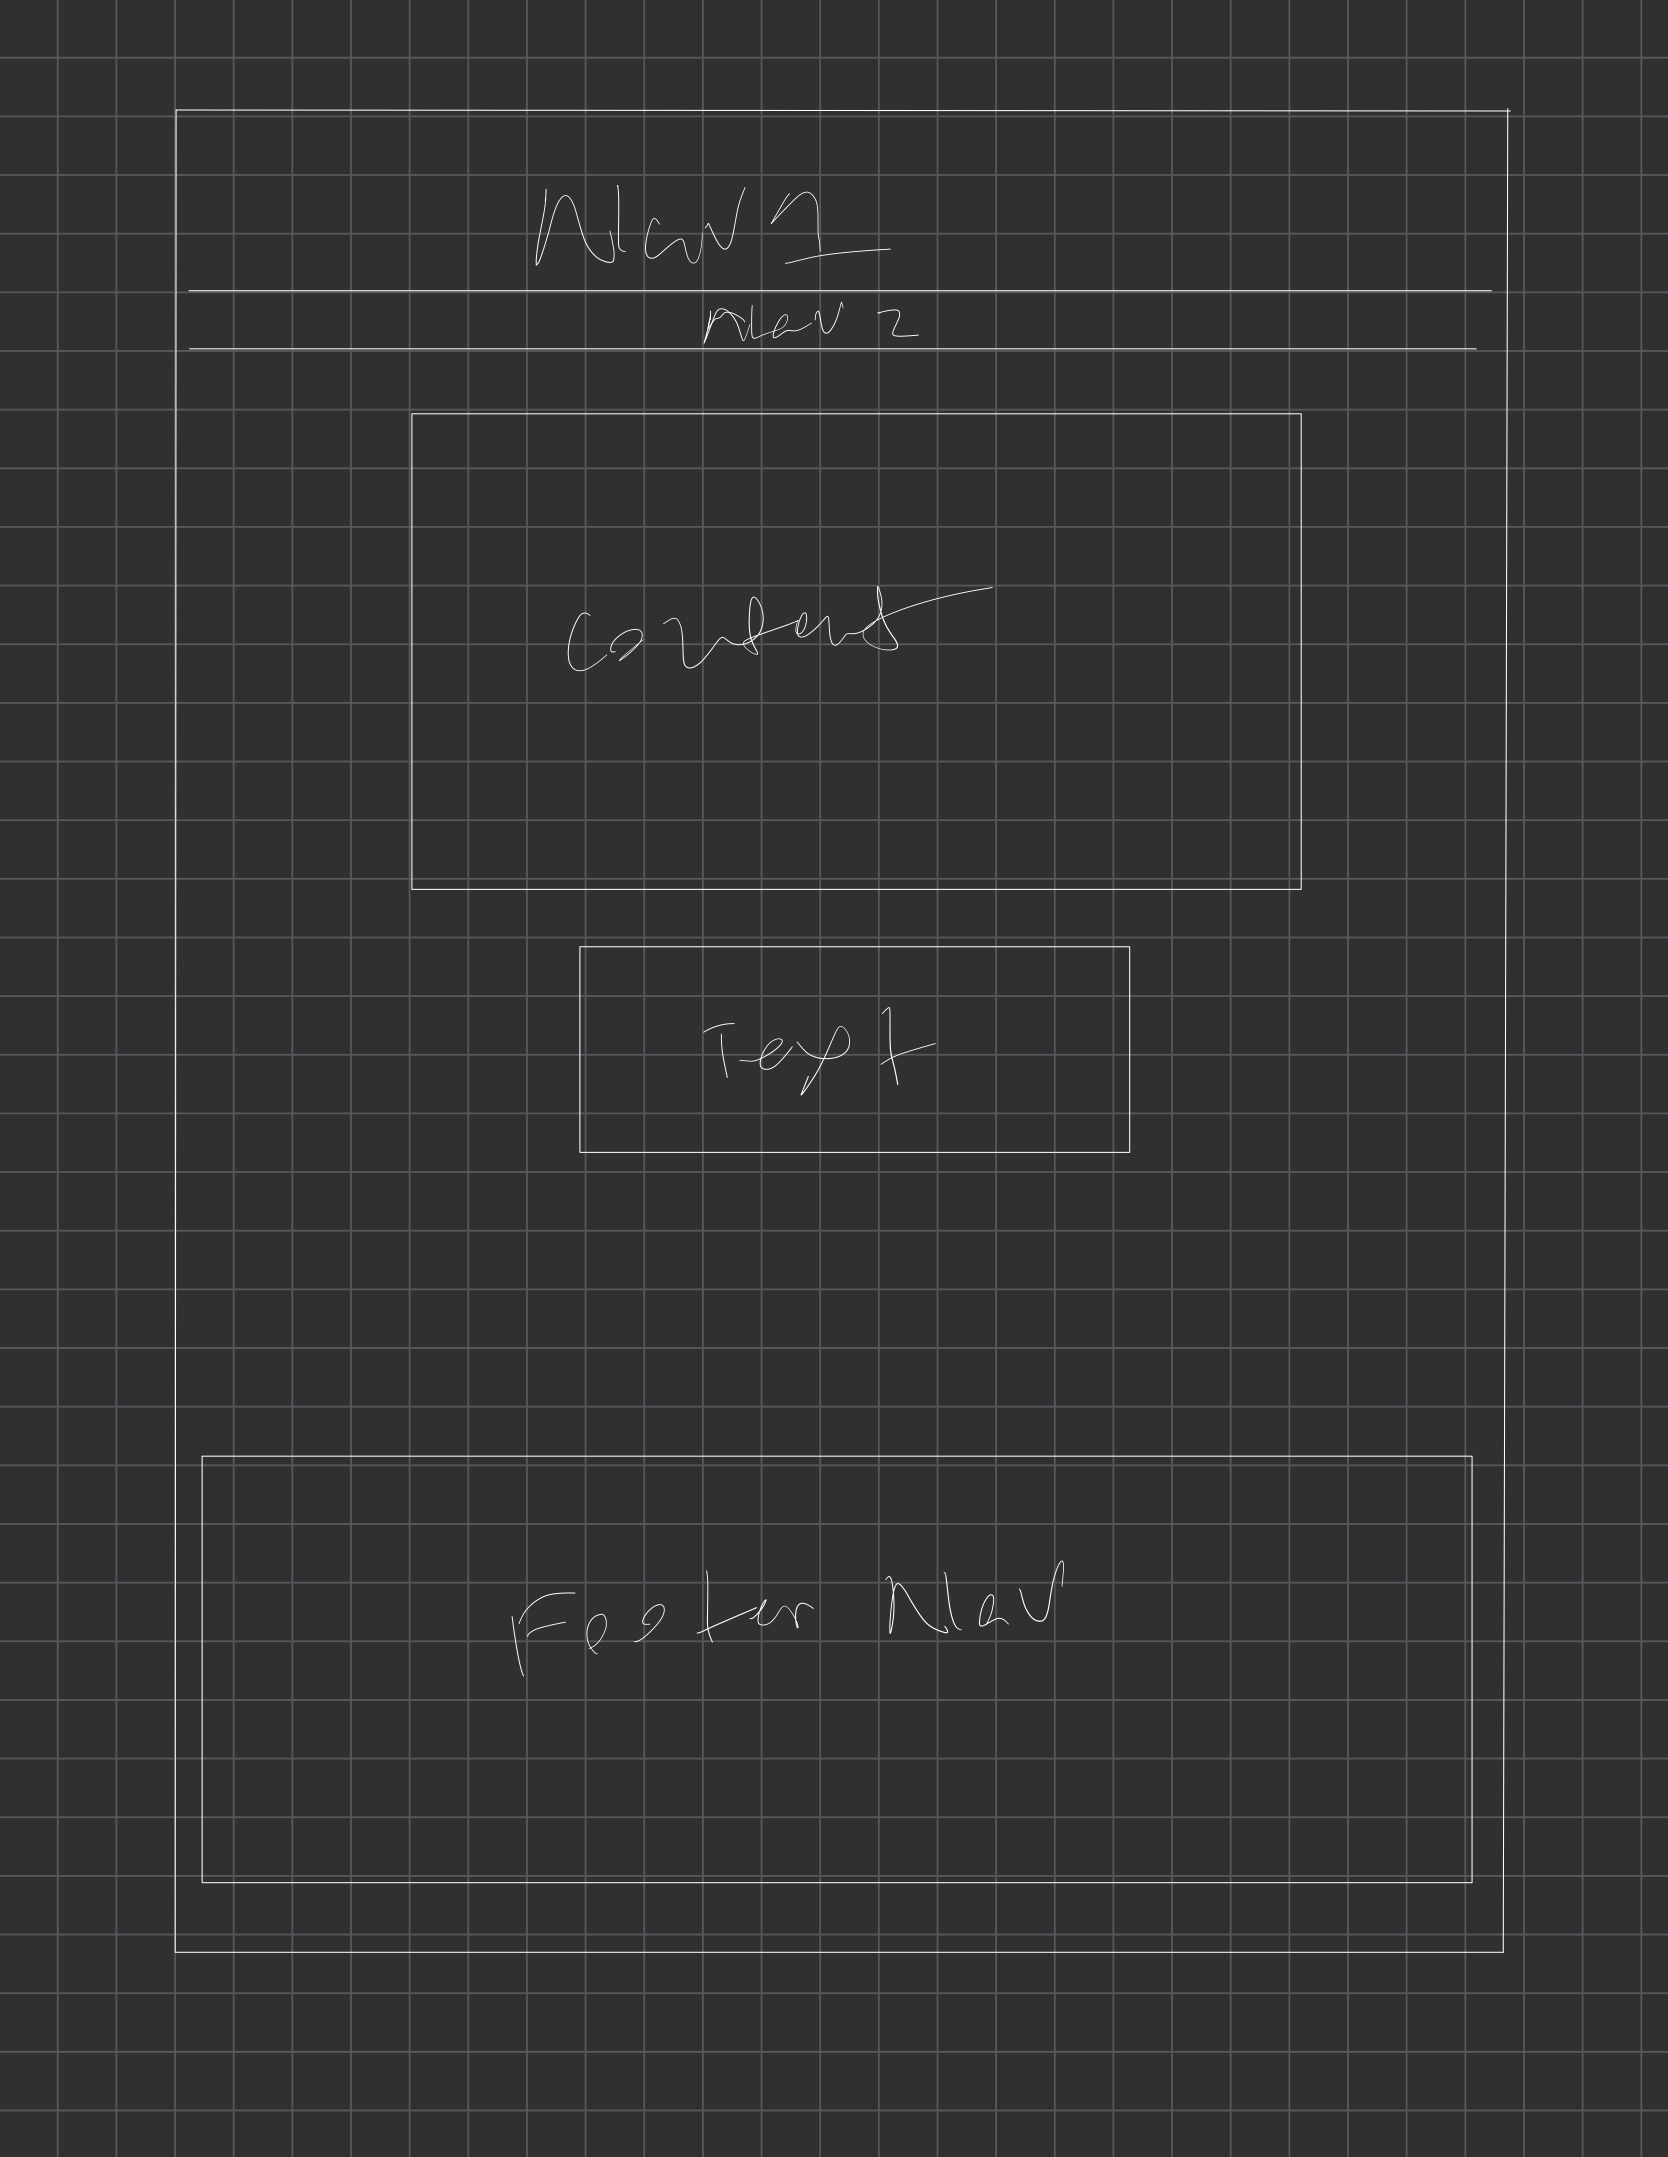 Nav 1
Nav 2
Content
Text
Footer Nav